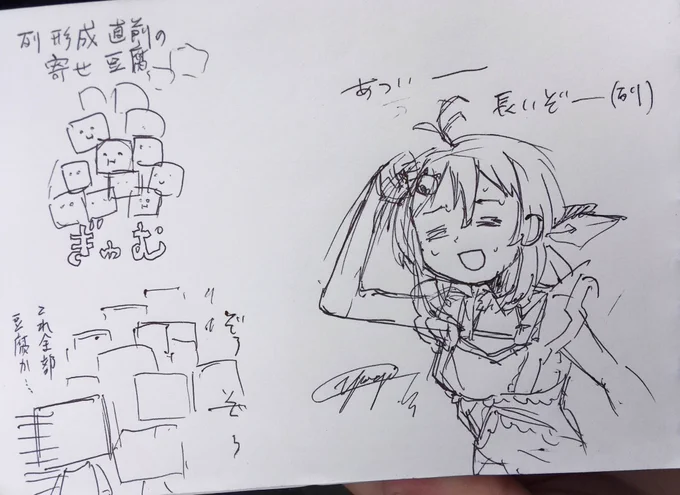 列形成直前の
寄せ豆腐
ぎゅむ
これ全部
豆腐か…
ぞろ
ぞろ
あつい――
長いぞー(列)